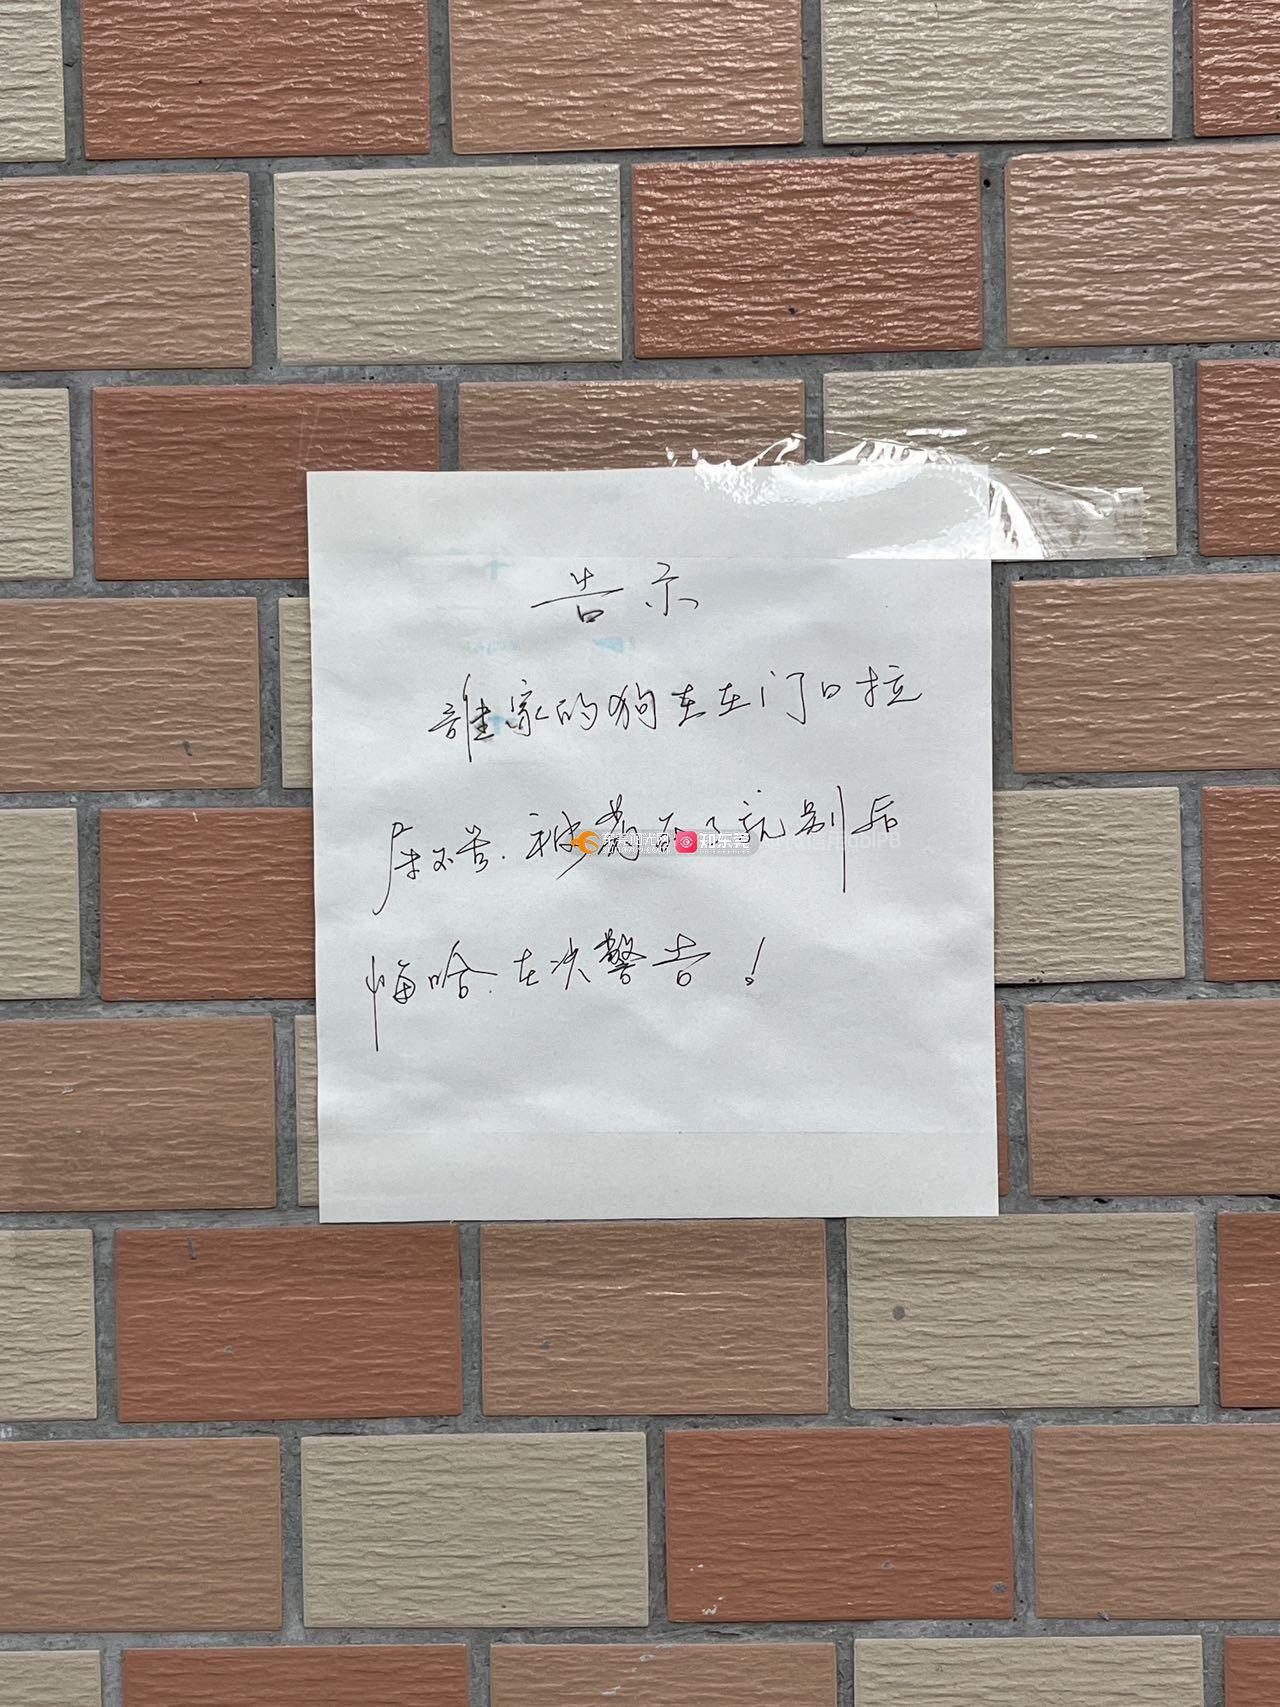 告示
谁家的狗在在门口拉
屎不管.被毒死了就别后
悔哈.在次警告！
东莞阳光网
知东莞